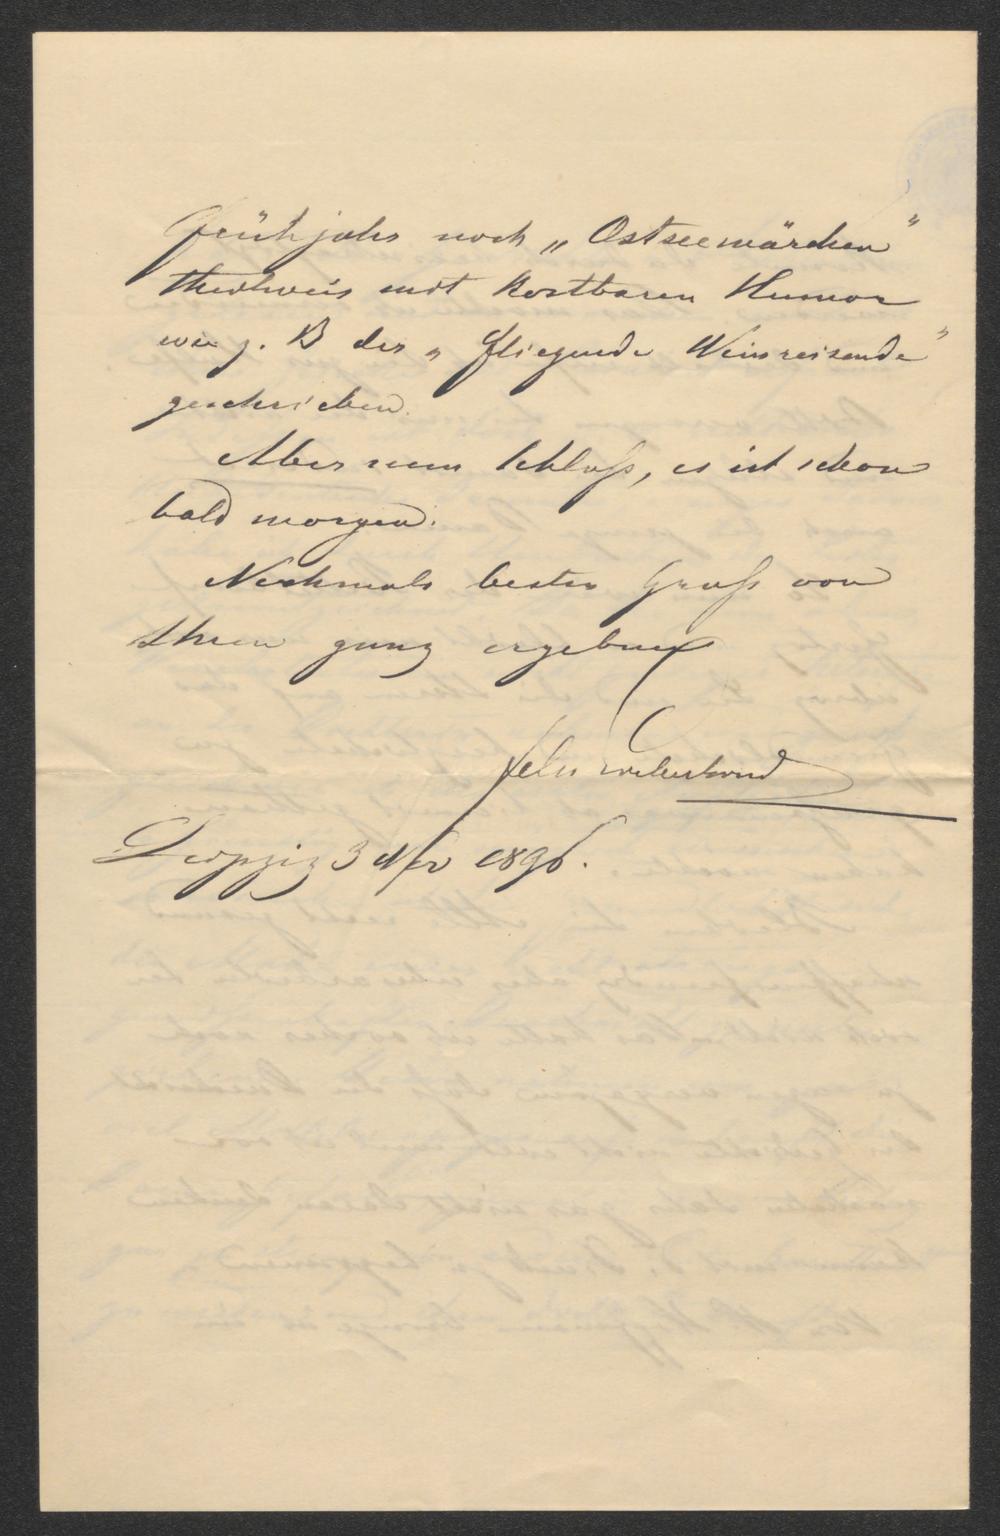 Frühjahr noch „Ostseemärchen"
theilweis mit kostbaren Humor
wie z. B der „fliegende Weinreisende"
geschrieben.
Aber nun Schluß, es ist schon
bald morgen.
Nochmals besten Gruß von
Ihren ganz ergebnen
Leipzig 3 Nov 1896.